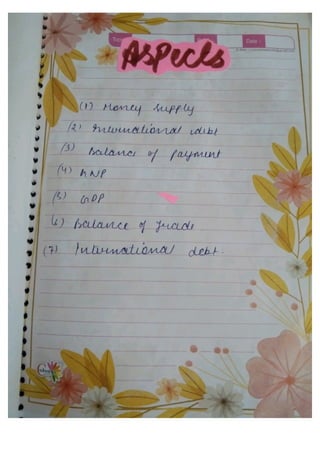 Aspects
Date :
(1) Money Supply
(2) International debt
(3) Balance of payment
(4) GNP
(5) GDP
6) Balance of Trade
(7) International debt.